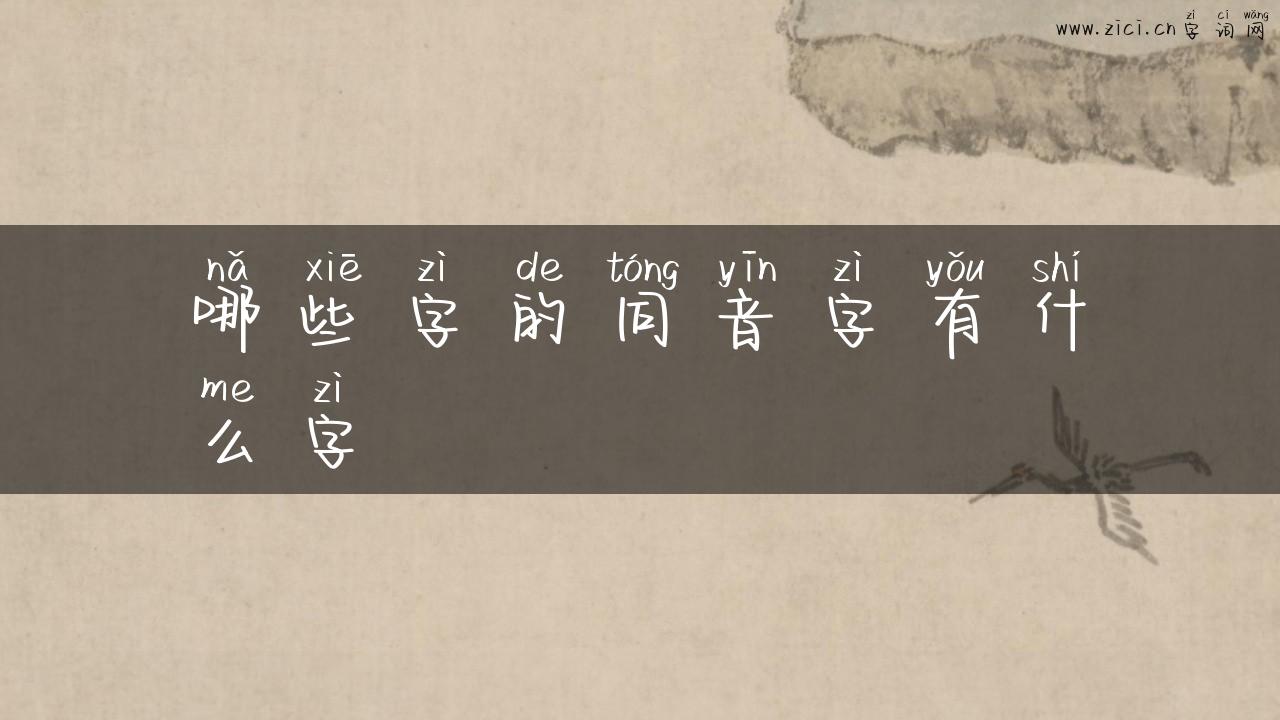 zì cí wǎng
www.zici.cn 字词网
nǎ xiē zì de tóng yīn zì yǒu shí
哪些字的同音字有什
me zì
么字